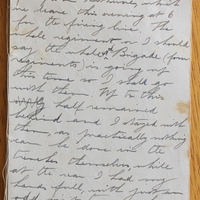 we leave this evening at 6
for the firing line. The
whole regiment or I should
say the whole Brigade (four
regiments) is going up
this time so I shall go
with them. Up to this
half remained
behind and I stayed with
them, as practically nothing
can be done in the
trenches themselves, while
at the rear I had my
hands full, with
odd